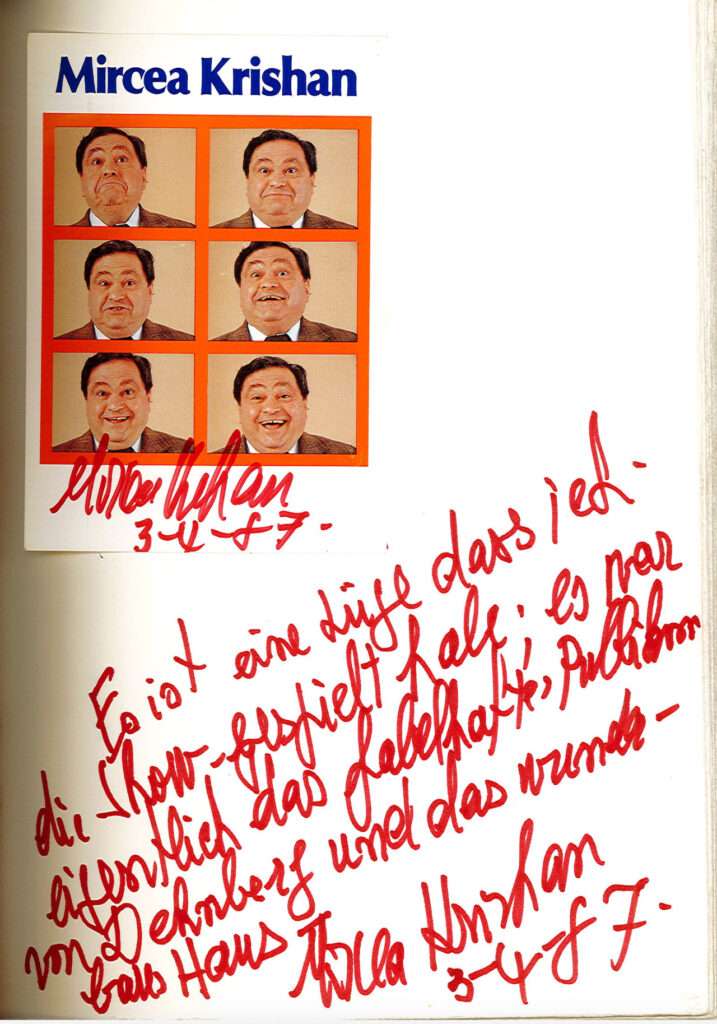 Mircea Krishan
Mircea Krishan
3-4-87.
Es ist eine Lüge dass ich
die Show gespielt habe; es war
eigentlich das fabelhafte Publikum
von Dehnberg und das wunder-
bare Haus Mircea Krishan
3-4-87.